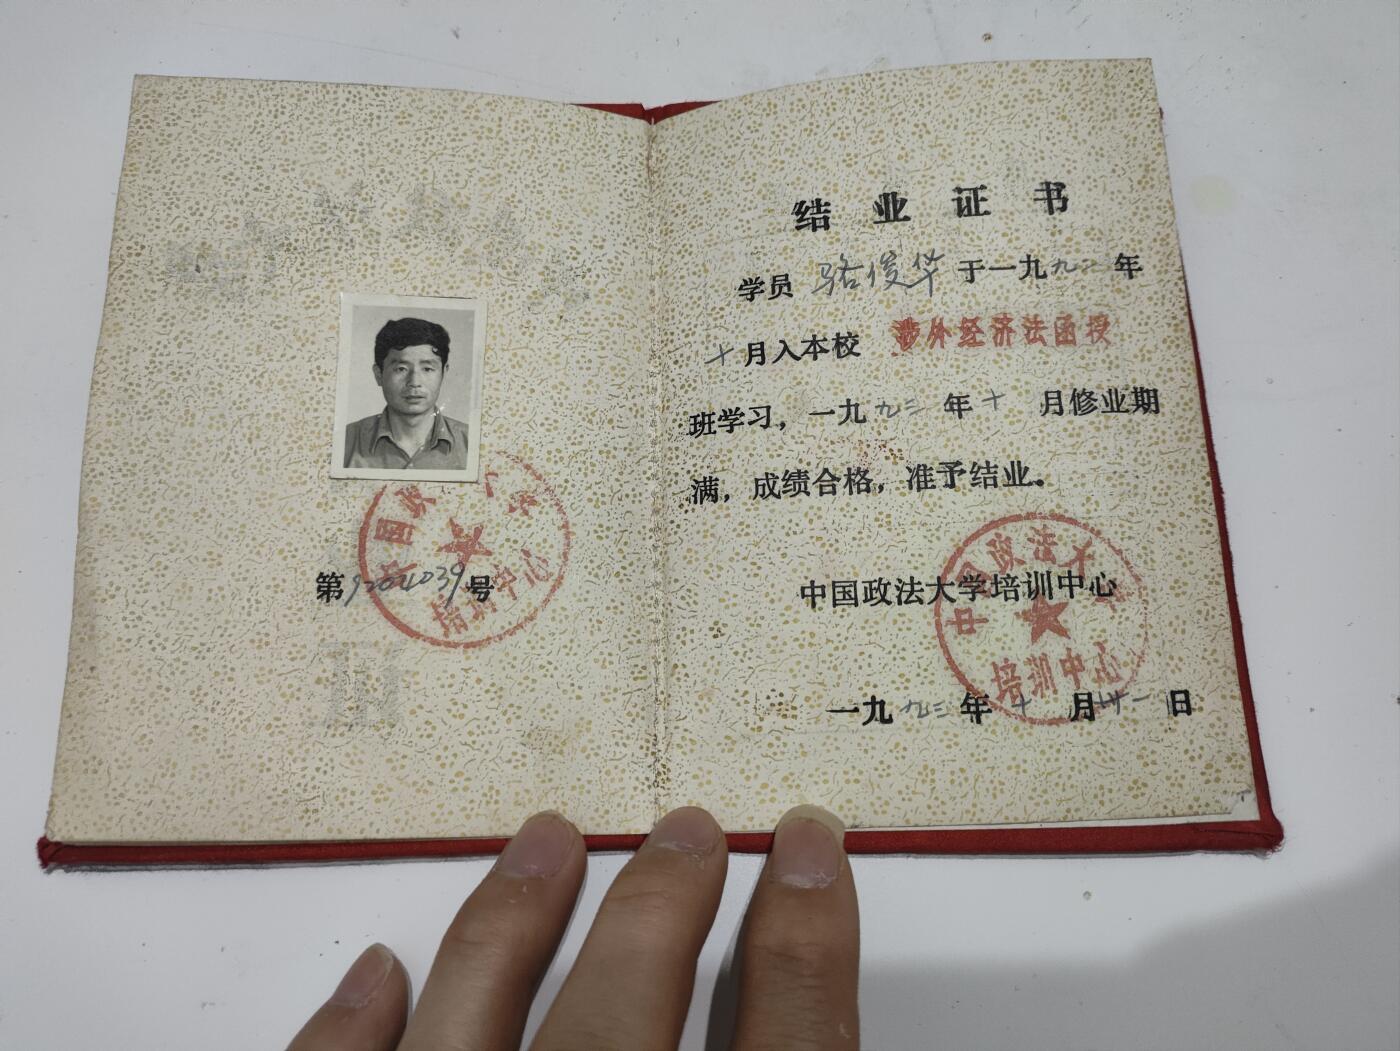 第9204039号
培训中心
结业证书
学员 骆俊华 于一九九二年
十月入本校 涉外经济法函授
班学习，一九九三年十月修业期
满，成绩合格，准予结业。
中国政法大学培训中心
中国政法大学
培训中心
一九九三年十月廿一日